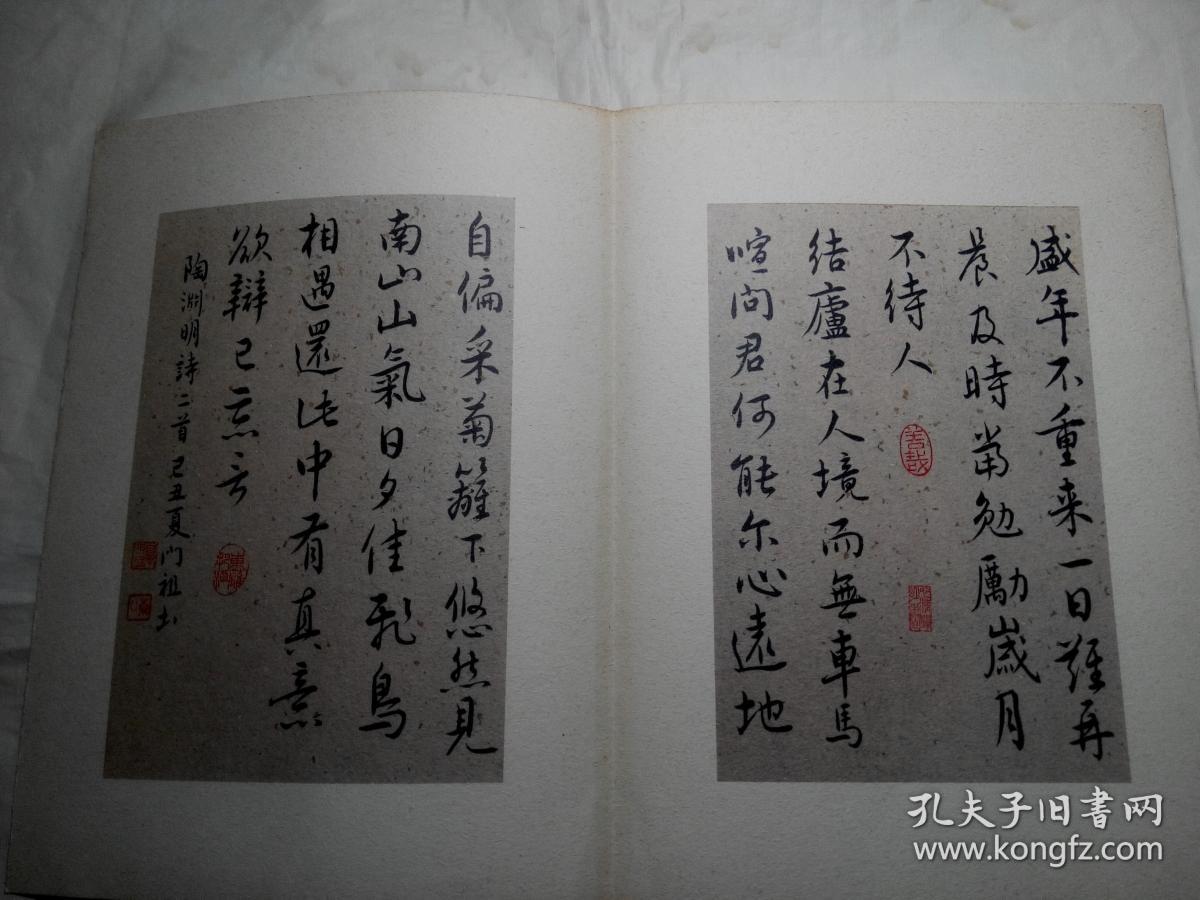 盛年不重来一日難再
晨及時當勉勵歲月
不待人
善哉
结廬在人境而無車馬
喧问君何能尔心遠地
自偏采菊籬下悠然見
南山山氣日夕佳飛鳥
相遇還此中有真意
欲辯已忘言
陶淵明詩二首己丑夏门祖书
孔夫子旧書网
www.kongfz.com